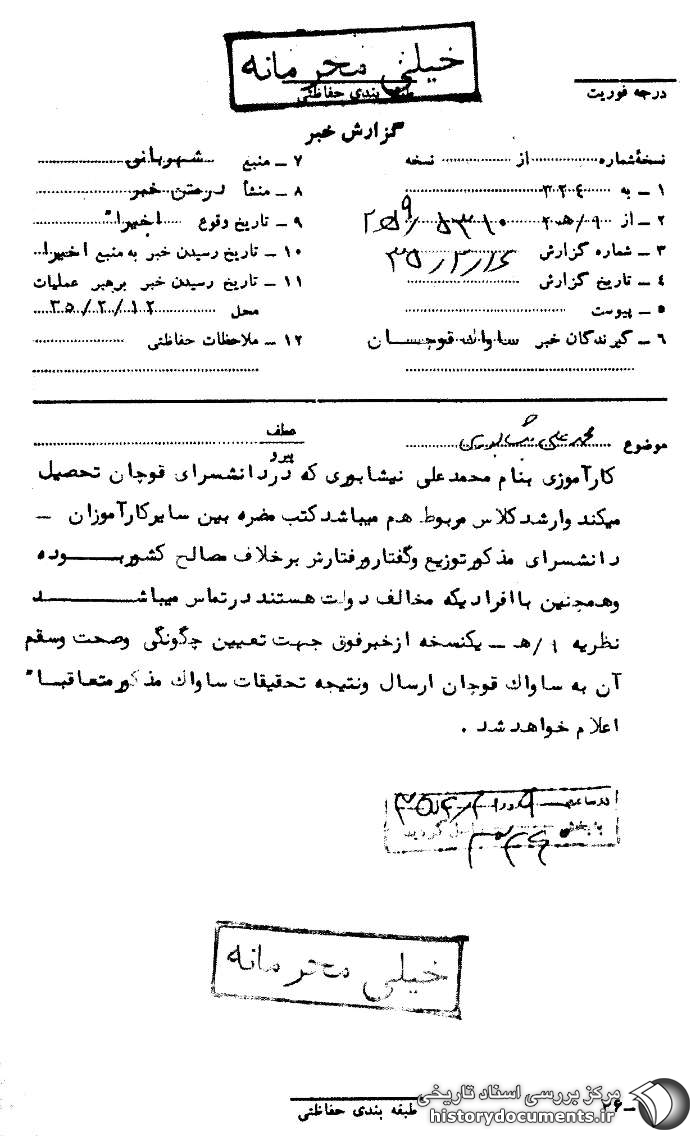 خیلی محرمانه
طبقه بندی حفاظتی
درجه فوریت
گزارش خبر
نسخهٔ شماره از نسخه
۱ ـ به ۳۲٤
۲ ـ از ۹/ه‍ ۲
۳ ـ شماره گزارش
٤ ـ تاریخ گزارش
۵ ـ پیوست
۶ ـ گیرندگان خبر ساواک قوچـــان
۷ ـ منبع شهربانی
۸ ـ منشأ درمتن خبر
۹ ـ تاریخ وقوع اخیرا"
۱۰ ـ تاریخ رسیدن خبر به منبع اخیرا"
۱۱ ـ تاریخ رسیدن خبر برهبر عملیات
محل ۳۵/۲/۱۲
۱۲ ـ ملاحظات حفاظتی
موضوع محمد علی نیشابوری
عطف
پیرو
کارآموزی بنام محمدعلی نیشابوری که دردانشسرای قوچان تحصیل
میکند وارشد کلاس مربوط هم میباشد کتب مضره بین سایرکارآموزان ـ
دانشسرای مذکور توزیع وگفتارورفتارش برخلاف مصالح کشوربـــوده
وهمچنین باافرادیکه مخالف دولت هستند درتماس میباشـــد
نظریه ۹/ه‍ ـ یکنسخه ازخبرفوق جهت تعیین چگونگی وصحت وسقم
آن به ساواک قوچان ارسال ونتیجه تحقیقات ساواک مذکورمتعاقبــا"
اعلام خواهد شد .
خیلی محرمانه
طبقه بندی حفاظتی
ـ ۲۶
مرکز بررسی اسناد تاریخی
historydocuments.ir